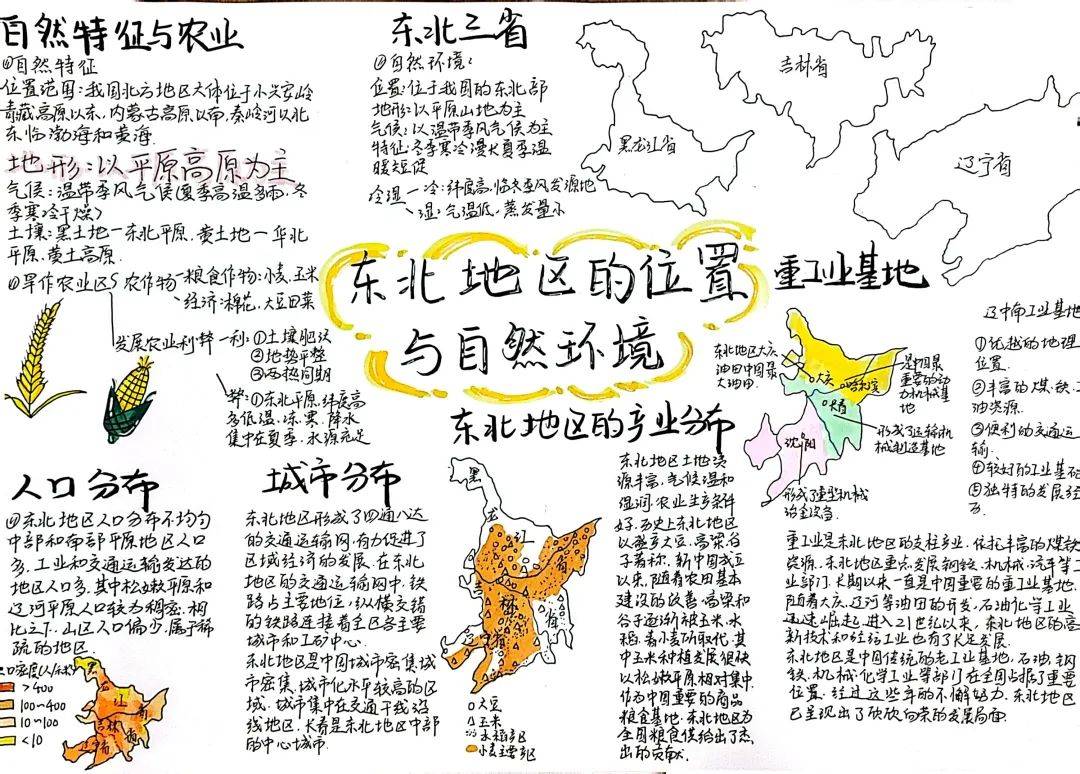 自然特征与农业
①自然特征
位置范围:我国北方地区大体位于小兴安岭
青藏高原以东,内蒙古高原以南,秦岭河以北
东临渤海和黄海.
地形:以平原高原为主
气候:温带季风气候(夏季高温多雨,冬
季寒冷干燥)
土壤:黑土地一东北平原,黄土地一华北
平原,黄土高原
旱作农业区
农作物
粮食作物:小麦,玉米
经济:棉花,大豆田菜
发展农业利弊
利:①土壤肥沃
②地势平整
③雨热同期
弊:①东北平原,纬度高
多低温,冻,寒,降水
集中在夏季,水源充足
东北三省
②自然环境:
位置:位于我国的东北部
地形:以平原山地为主
气候:以温带季风气候为主
特征:冬季寒冷漫长夏季温
暖短促
冷湿
冷:纬度高,临冬季风发源地
湿:气温低,蒸发量小
黑龙江省
吉林省
辽宁省
东北地区的位置
与自然环境
重工业基地
东北地区大庆
油田中国最
大油田.
大庆
哈尔滨
长春
沈阳
是中国最
重要的动
力机械基
地
形成了运输机
械制造基地
形成了重型机械
冶金设备.
辽中南工业基地
①优越的地理
位置.
②丰富的煤.铁.
油资源.
③便利的交通运
输.
④较好的工业基础
⑤独特的发展经
人口分布
东北地区人口分布不均匀
中部和南部平原地区人口
多,工业和交通运输发达的
地区人口多,其中松嫩平原和
辽河平原人口较为稠密,相
比之下,山区人口偏少,属于稀
疏的地区.
>400
100~400
10~100
<10
黑
龙
江
吉林
省
辽宁
省
城市分布
东北地区形成了四通八达
的交通运输网,有力促进了
区域经济的发展,在东北
地区的交通运输网中,铁
路占主要地位,纵横交错
的铁路连接着全区各主要
城市和工矿中心.
东北地区是中国城市密集,城
市密集,城市化水平较高的区
域.城市集中在交通干线沿
线地区.长春是东北地区中部
的中心城市.
东北地区的产业分布
黑
龙
江
林
省
大豆
玉米
水稻
小麦主要
东北地区土地资
源丰富,气候温和
湿润,农业生产条件
好.历史上东北地区
以盛产大豆,高粱谷
子著称,新中国成立
以来,随着农田基本
建设的改善,高粱和
谷子逐渐被玉米,水
稻,春小麦所取代,其
中玉米种植发展很快
以松嫩平原相对集中,
作为中国重要的商品
粮食基地.东北地区为
全国粮食供给出了杰
出的贡献.
重工业是东北地区的支柱产业,依托丰富的煤铁
资源,东北地区重点发展钢铁,机械,汽车等工
业部门,长期以来一直是中国重要的重工业基地.
随着大庆,辽河等油田的开发,石油化学工业
迅速崛起,进入21世纪以来,东北地区的高
新技术和轻纺工业也有了长足发展.
东北地区是中国传统的老工业基地,石油,钢
铁,机械,化学工业等部门在全国占据了重要
位置.经过这些年的不懈努力,东北地区
已呈现出了欣欣向荣的发展局面.